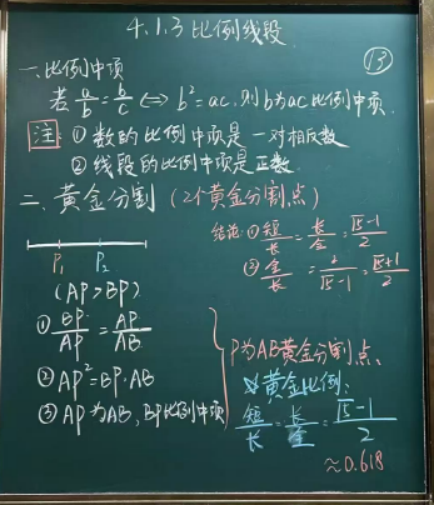 4.1.3 比例线段
⑬
一、比例中项
若 a/b = b/c ⟺ b² = ac, 则b为ac比例中项.
注: ① 数的比例中项是一对相反数
② 线段的比例中项是正数.
二、黄金分割 (2个黄金分割点)
结论: ① 短/长 = 长/全 = (√5-1)/2
② 全/长 = 2/(√5-1) = (√5+1)/2
P₁ P₂
(AP>BP)
① BP/AP = AP/AB
② AP² = BP·AB
③ AP为AB, BP比例中项
P为AB黄金分割点.
黄金比例:
短/长 = 长/全 = (√5-1)/2
≈0.618